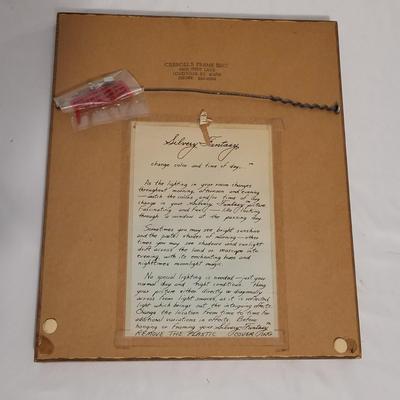 FRAME
Silvery Fantasy
change color and time of day. ™
As the lighting in your room changes
throughout morning, afternoon and evening
— watch the colors and/or time of day
change in your Silvery Fantasy picture
fascinating and real — like looking
through a window at the passing day.
Sometimes you may see bright sunshine
and the pastel shades of morning — other
times you may see shadows and sunlight
drift across the land as merges into
evening with its enchanting hues and
nighttimes moonlight magic.
No special lighting is needed — just your
normal day and night conditions. Hang
your picture either directly or diagonally
across from light source, as it is reflected
light which brings out the intriguing effects.
Change the location from time to time for
additional variations in effects. Before
hanging or framing your Silvery Fantasy
REMOVE THE PLASTIC COVERING